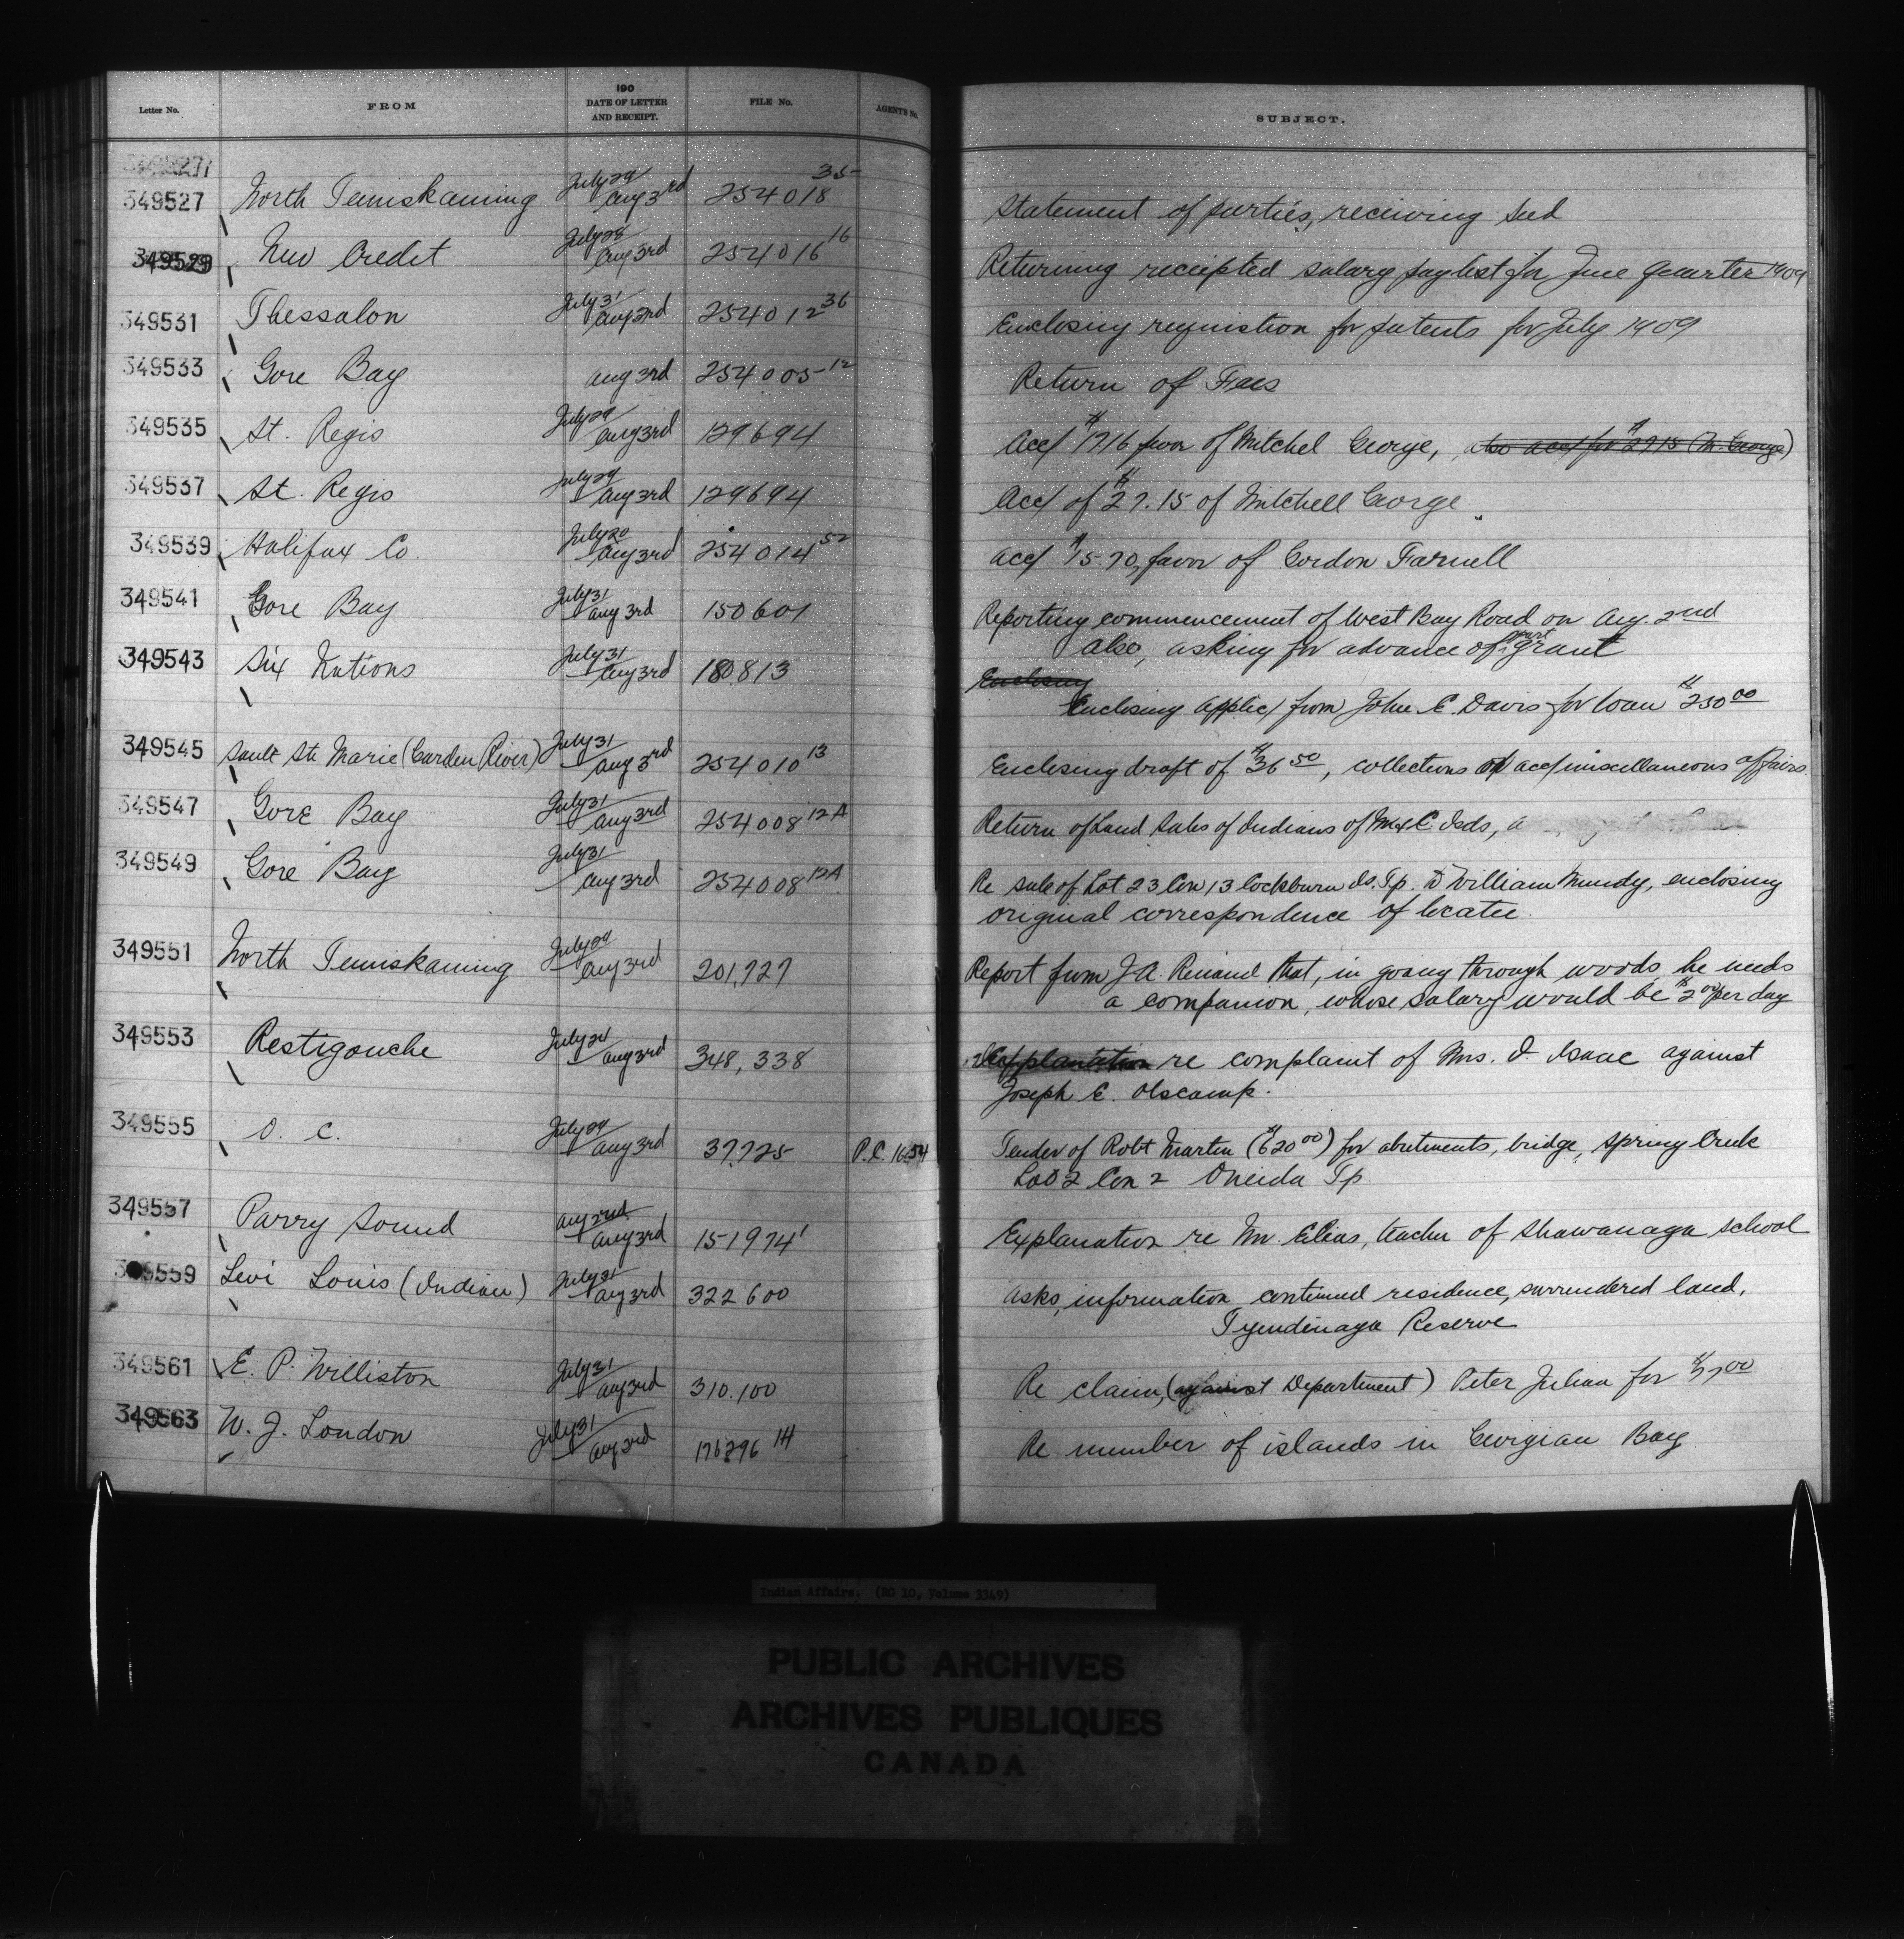 Letter No. FROM 190 DATE OF LETTER AND RECEIPT. FILE No. AGENT'S No. SUBJECT.
349527
349527 North Temiskaming July 29 Aug 3rd 254018 35 Statement of parties, receiving seed
349529 New Credit July 28 Aug 3rd 254016 16 Returning receipted salary paylist for June quarter 1909
349531 Thessalon July 31 Aug 3rd 254012 36 Enclosing requistion for patents for July 1909
349533 Gore Bay Aug 3rd 254005 12 Return of Fees
349535 St. Regis July 29 Aug 3rd 129694 Acc/ $1716 favor of Mitchel George, also acc/ for $2715 (M. George)
349537 St. Regis July 29 Aug 3rd 129694 Acc/ of $27.15 of Mitchell George
349539 Halifax Co. July 20 Aug 3rd 254014 52 acc/ $15.70, favor of Gordon Farnell
349541 Gore Bay July 31 Aug 3rd 150601 Reporting commencement of West Bay Road on Aug. 2nd
also, asking for advance of part grant
349543 Six Nations July 31 Aug 3rd 180.813 Enclosing
Enclosing applic/ from John E. Davis for loan $250 00
349545 Sault Ste Marie (Garden River) July 31 Aug 3rd 254010 13 Enclosing draft of $36 50, collections of acc/ miscellaneous affairs
349547 Gore Bay July 31 Aug 3rd 254008 12A Return of Land Sales of Indians of M & C Isds, a
349549 Gore Bay July 31 Aug 3rd 254008 12A Re sale of Lot 23 Con 13 Cockburn Is. Tp. to William Mundy, enclosing
original correspondence of locatee.
349551 North Temiskaming July 29 Aug 3rd 201,727 Report from J A. Renaud that, in going through woods he needs
a companion, whose salary would be $2 00 per day
349553 Restigouche July 24 Aug 3rd 348,338 re complaint of Mrs. I. Isaac against
Joseph E. Olscamp.
349555 O. C. July 29 Aug 3rd 37,725 P.C. 1654 Tender of Robt Martin ($620 00) for abutments, bridge, Spring Creek
Lot 2 Con 2 Oneida Tp.
349557 Parry Sound Aug 2nd Aug 3rd 151974 1 Explanation re Mr. Elias, teacher of Shawanaga school
349559 Levi Louis (Indian) July 31 Aug 3rd 322600 asks, information continued residence, surrendered land,
Tyendinaga Reserve
349561 E. P. Williston July 31 Aug 3rd 310.100 Re claim, (against Department) Peter Julian for $77 00
349563 W. J. London July 31 Aug 3rd 176296 14 Re number of islands in Georgian Bay
Indian Affairs. (RG 10, Volume 3349)
PUBLIC ARCHIVES
ARCHIVES PUBLIQUES
CANADA